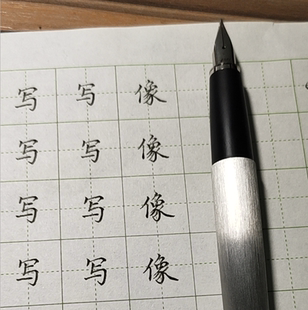 写 写 像
写 写 像
写 写 像
写 写 像